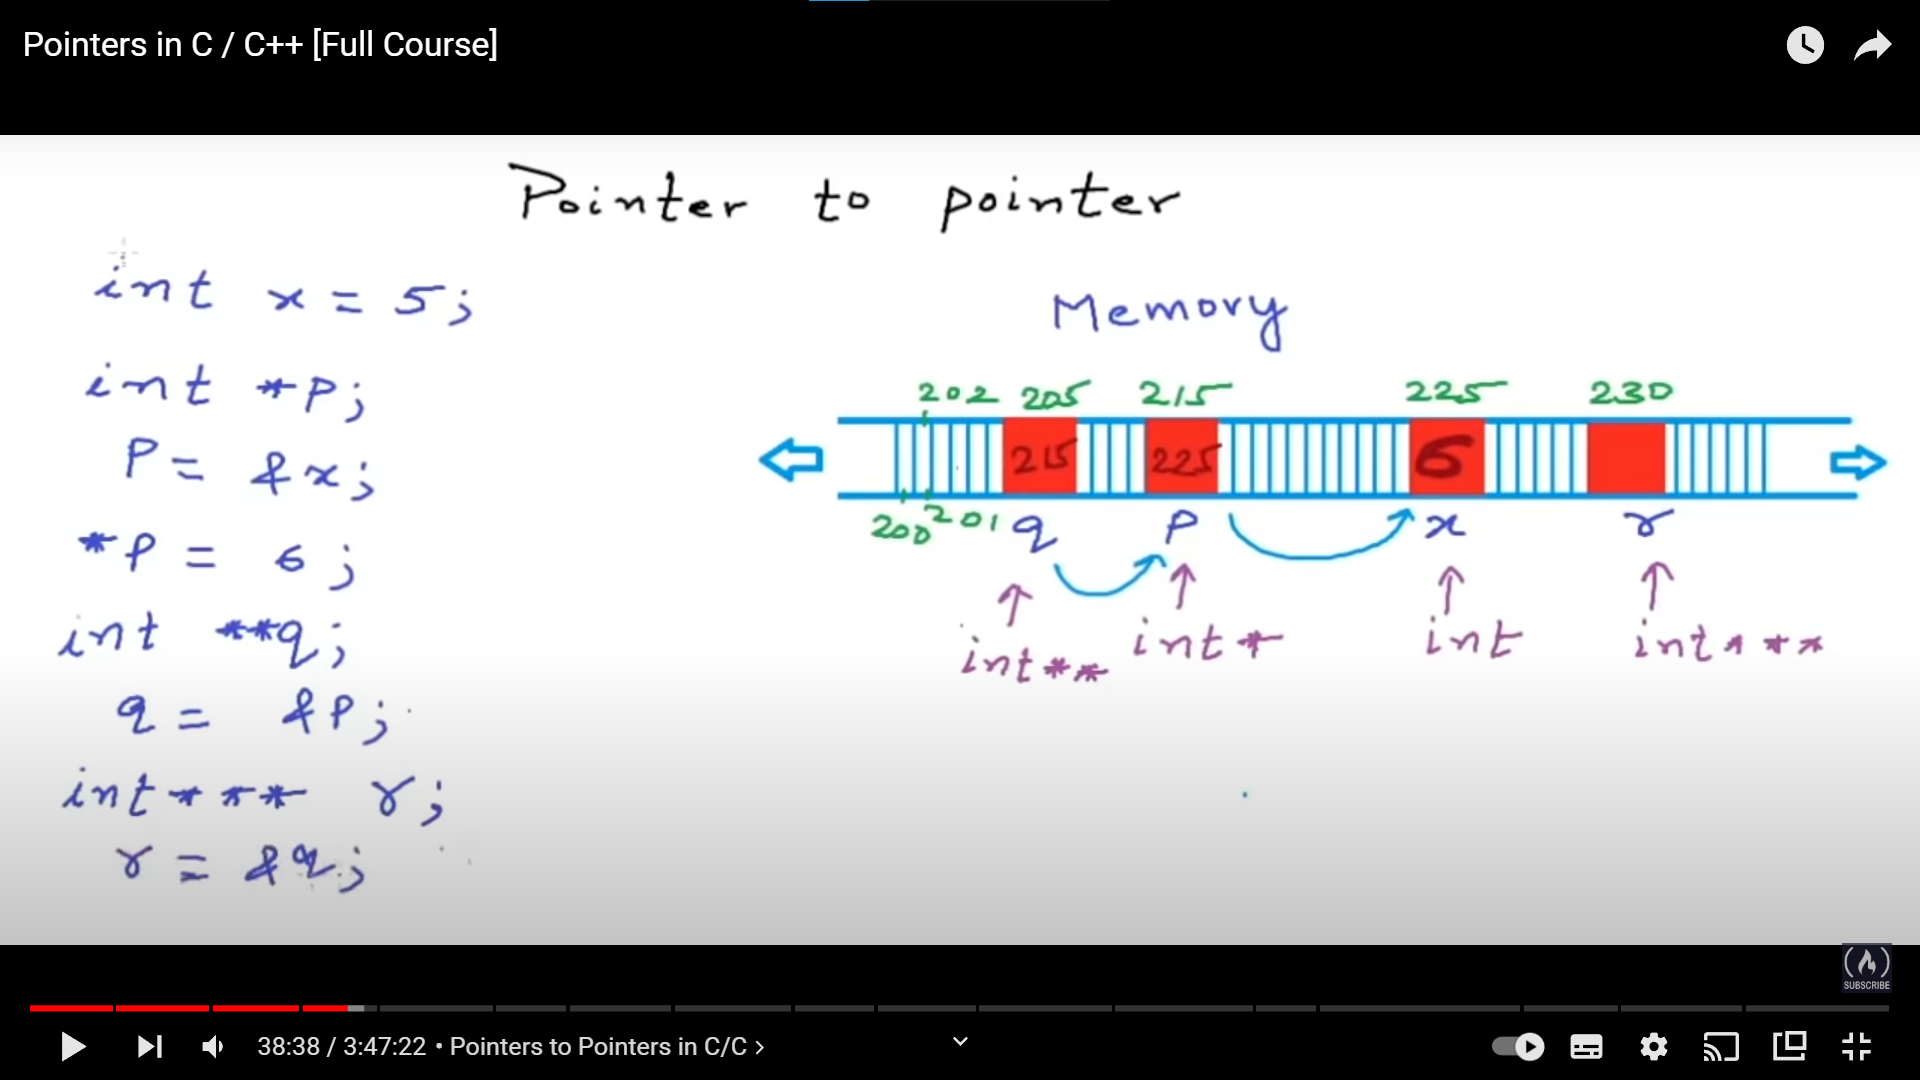 Pointers in C / C++ [Full Course]
Pointer to pointer
int x = 5;
int *p;
P = &x;
*P = 6;
int **q;
q = &P;
int*** r;
r = &q;
Memory
202 205 215 225 230
215 225 6
200 201 q P x r
int** int* int int***
SUBSCRIBE
38:38 / 3:47:22 • Pointers to Pointers in C/C >